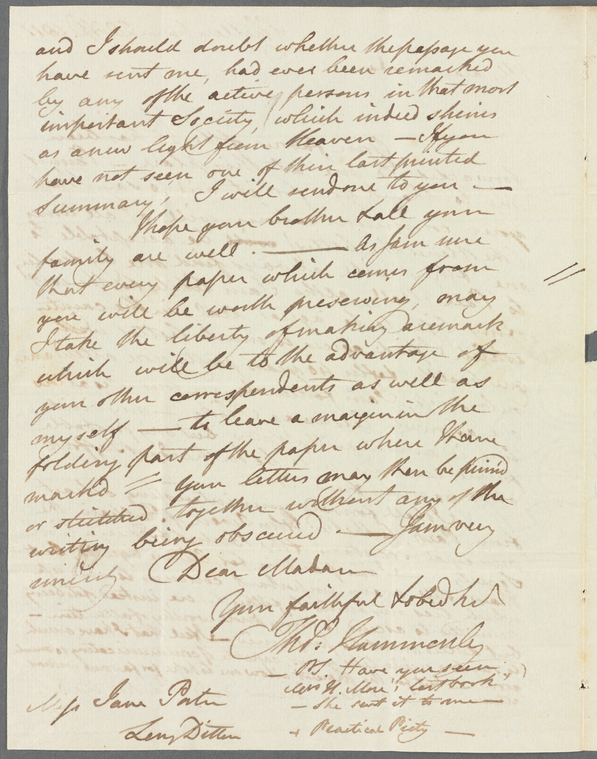 and I should doubt whether the passage you
have sent me, had ever been remarked
by any of the active persons in that most
important Society, which indeed shines
as a new light from Heaven — If you
have not seen one of their last printed
Summary, I will send one to you —
I hope your brother & all your
family are well. — As I am sure
that every paper which comes from
you will be worth preserving, may
I take the liberty of making a remark
which will be to the advantage of
your other correspondents as well as
myself — to leave a margin in the
folding part of the paper where I have
marked = your letters may then be pinn'd
or stitched together without any of the
writing being obscured — I am very
sincerely Dear Madam
Your faithful & obed.
Tho.s Hammersley
— PS. Have you seen
Mrs H. More's last book,
— She sent it to me —
+ Practical Piety —
Miss Jane Porter
Long Ditton